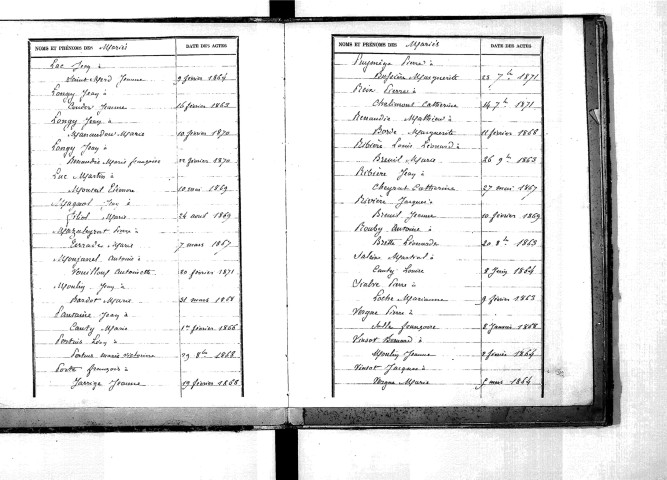 NOMS ET PRÉNOMS DES Mariés DATE DES ACTES
Lac Jean à
Saint Merd Jeanne 9 février 1864
Longy Jean à
Couder Jeanne 16 février 1863
Longy Jean à
Manaudou Marie 10 février 1870
Longy Jean à
Renaudie Marie françoise 22 février 1870
Luc Martin à
Monéal Etienne 10 mai 1869
Magnol Jean à
Marie 24 août 1869
Mazaleyrat Pierre à
Terrade Marie 7 mars 1867
Monjanel Antoine à
Antoinette 20 février 1871
Moulry Jean à
Bardot Marie 31 mars 1868
Lansade Jean à
Canty Marie 1er février 1866
Léon à
Marie 29 8bre 1868
Porte françois à
Jarrige Jeanne 19 février 1868
NOMS ET PRÉNOMS DES Mariés DATE DES ACTES
Puymége Pierre à
Bussière Marguerite 23 7bre 1871
Rein Pierre à
Chabrimont Catherine 14 7bre 1871
Renaudie Mathieu à
Borde Marguerite 11 février 1868
Ribière Louis Léonard à
Breuil Marie 26 9bre 1863
Ribière Jean à
Cheyrat Catherine 27 mai 1867
Rivière Jacques à
Breuil Jeanne 10 février 1869
Rouby Antoine à
Brette Léonarde 20 8bre 1863
Martial à
Canty Louise 8 Juin 1864
Pierre à
Loche Marianne 9 février 1863
Vergne Pierre à
françoise 8 Janvier 1868
Vinsot Bernard à
Moulry Jeanne 8 février 1864
Vinsot Jacques à
Vergne Marie 5 mars 1864